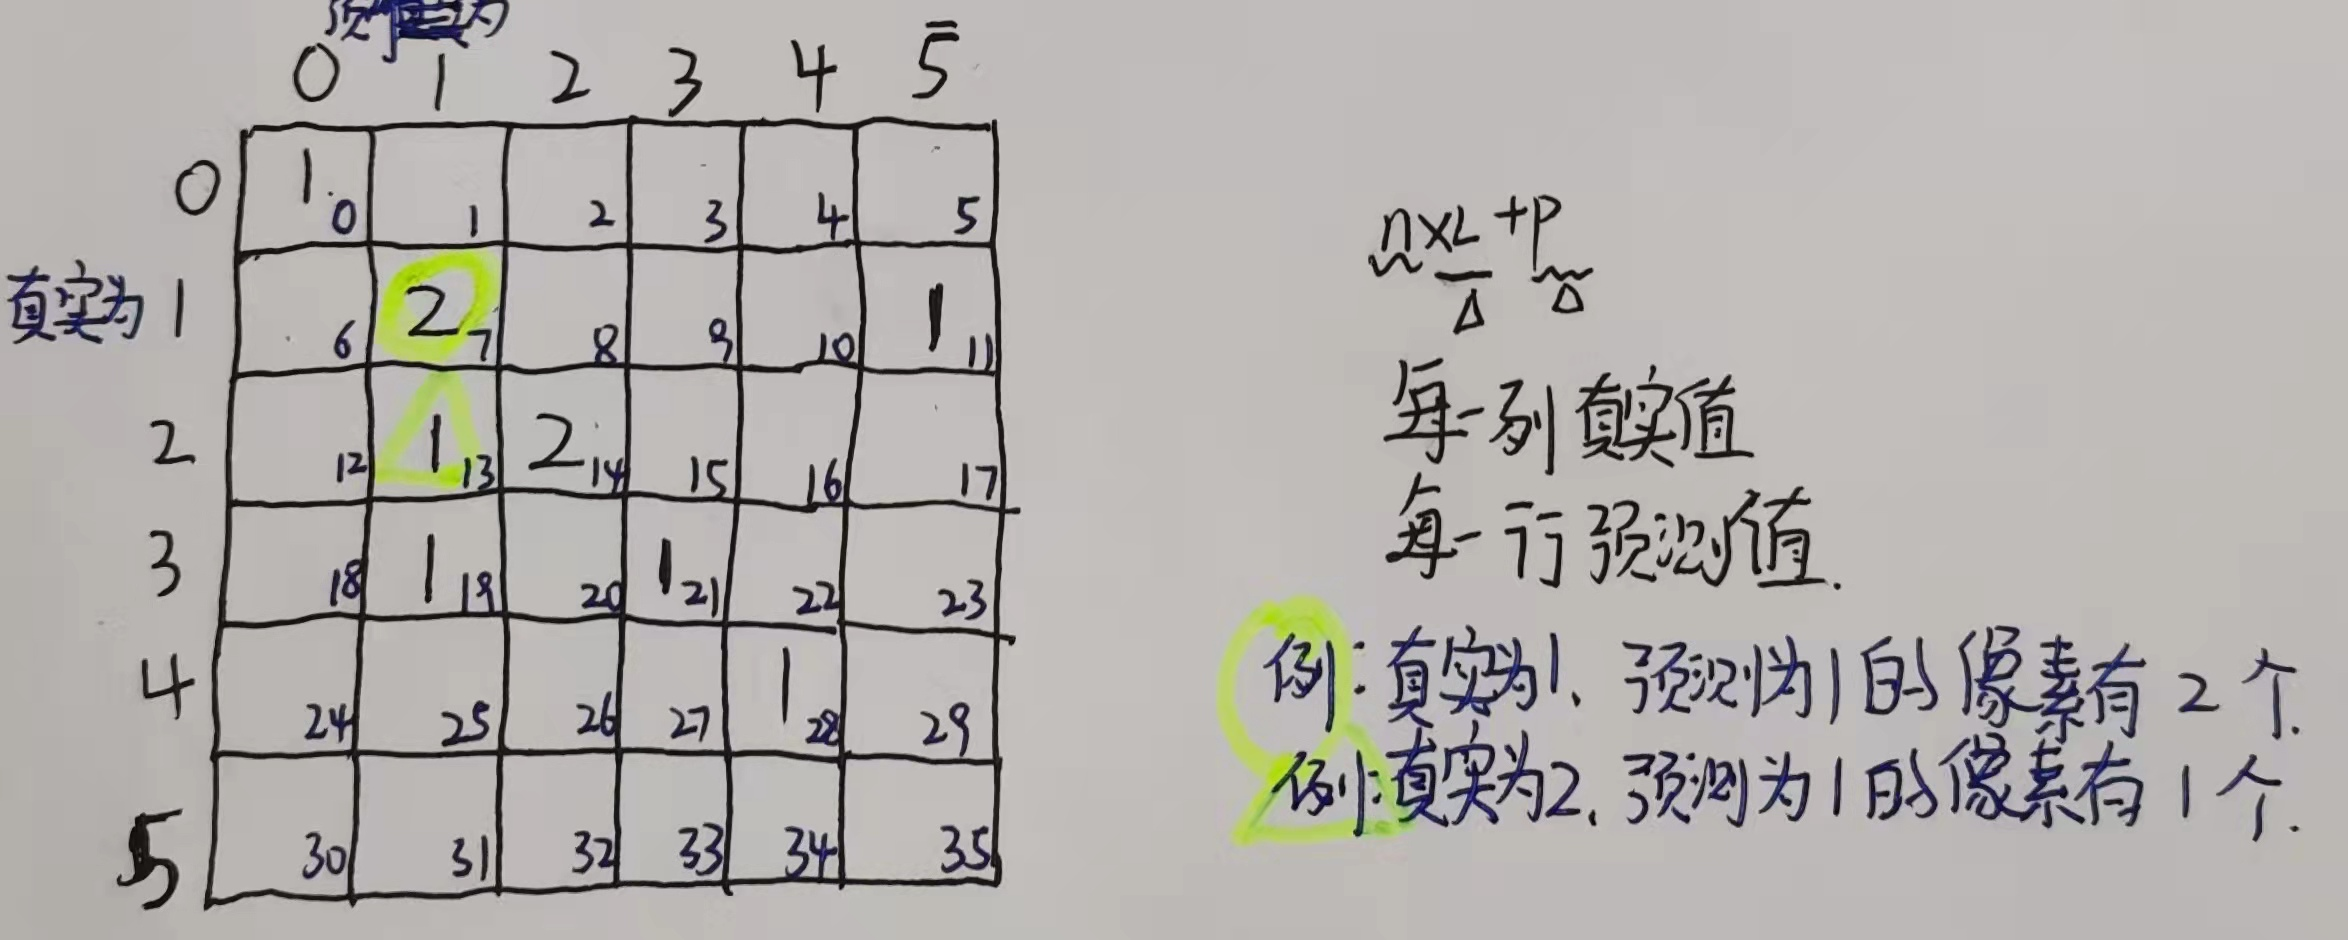 预 为
0 1 2 3 4 5
0 1 0 1 2 3 4 5
真实为 1 6 2 7 8 9 10 1 11
2 12 1 13 2 14 15 16 17
3 18 1 19 20 1 21 22 23
4 24 25 26 27 1 28 29
5 30 31 32 33 34 35
n×L+P
每一列真实值
每一行预测值.
例:真实为1、预测为1的像素有2个.
例:真实为2、预测为1的像素有1个.